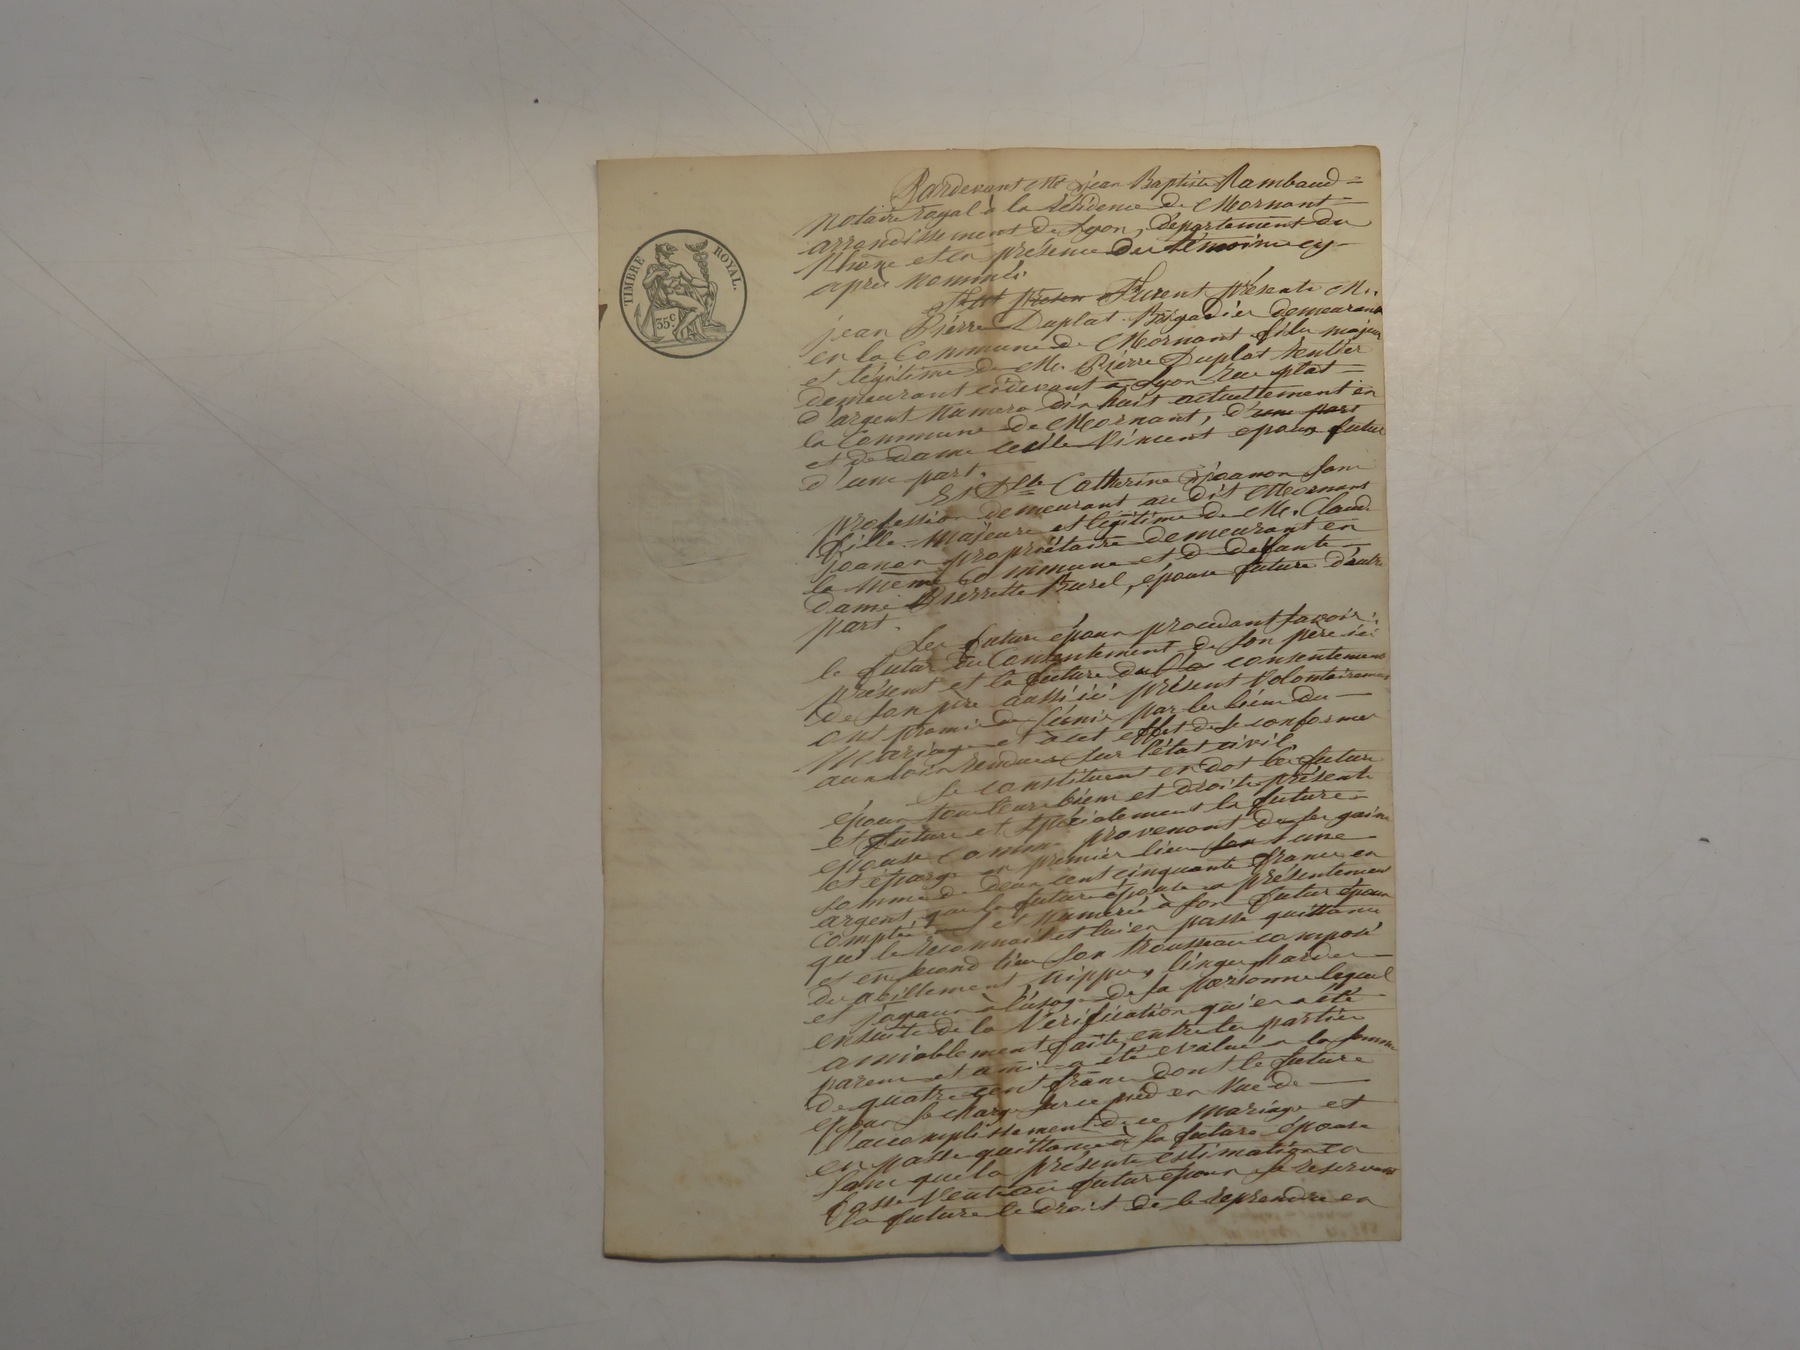 TIMBRE ROYAL.
35c
Pardevant Me Jean Baptiste Rambaud =
Notaire royal à la résidence de Mornant =
arrondissement de Lyon, département du
Rhône et en présence des témoins cy-
après nommés
Furent présents M.
jean Pierre Duplat Brigadier demeurant
en la Commune de Mornant fils majeur
et légitime de M. Pierre Duplat rentier
demeurant cidevant à Lyon rue plat
d'argent Numéro dix huit actuellement en
la Commune de Mornant, d'une part
et de dame Vincent epoux futur
d'une part.
Et Dlle Catherine Joanon sans
profession demeurant au dit Mornant
fille Majeure et légitime de M. Claude
Joanon propriétaire demeurant en
la même Commune et de défunte
dame Pierrette Burel, épouse future d'autre
part.
Les futurs époux procedant savoir:
le futur du Consentement de son père ici
présent et la future de consentement
de son père aussi ici présent volontairement
ont promis de s'unir par les liens du
Mariage et à cet effet de se conformer
aux loix rendues sur l'état civil
Se constituent en dot les futurs
époux tous leurs biens et droits présents
et futurs et spécialement la future
epouse comme provenant de ses gains
et épargnes en premier lieu une
somme de deux cent cinquante francs en
argent que la future épouse a présentement
comptés et numérés à son futur époux
qui le reconnait et lui en passe quittance
et en second lieu son trousseau composé
d'abillements nippes, linges hardes
et joyaux à l'usage de sa personne lequel
ensuite de la Vérification qui en a été
amiablement faite entre les parties
parens et amis a été evalué à la somme
de quatre cent francs dont le futur
époux se charge sur ce pied en vue de
l'accomplissement de ce Mariage et
en passe quittance à la future épouse
sans que la présente estimation en
fasse Vente au futur époux se réservant
la future le droit de le reprendre en